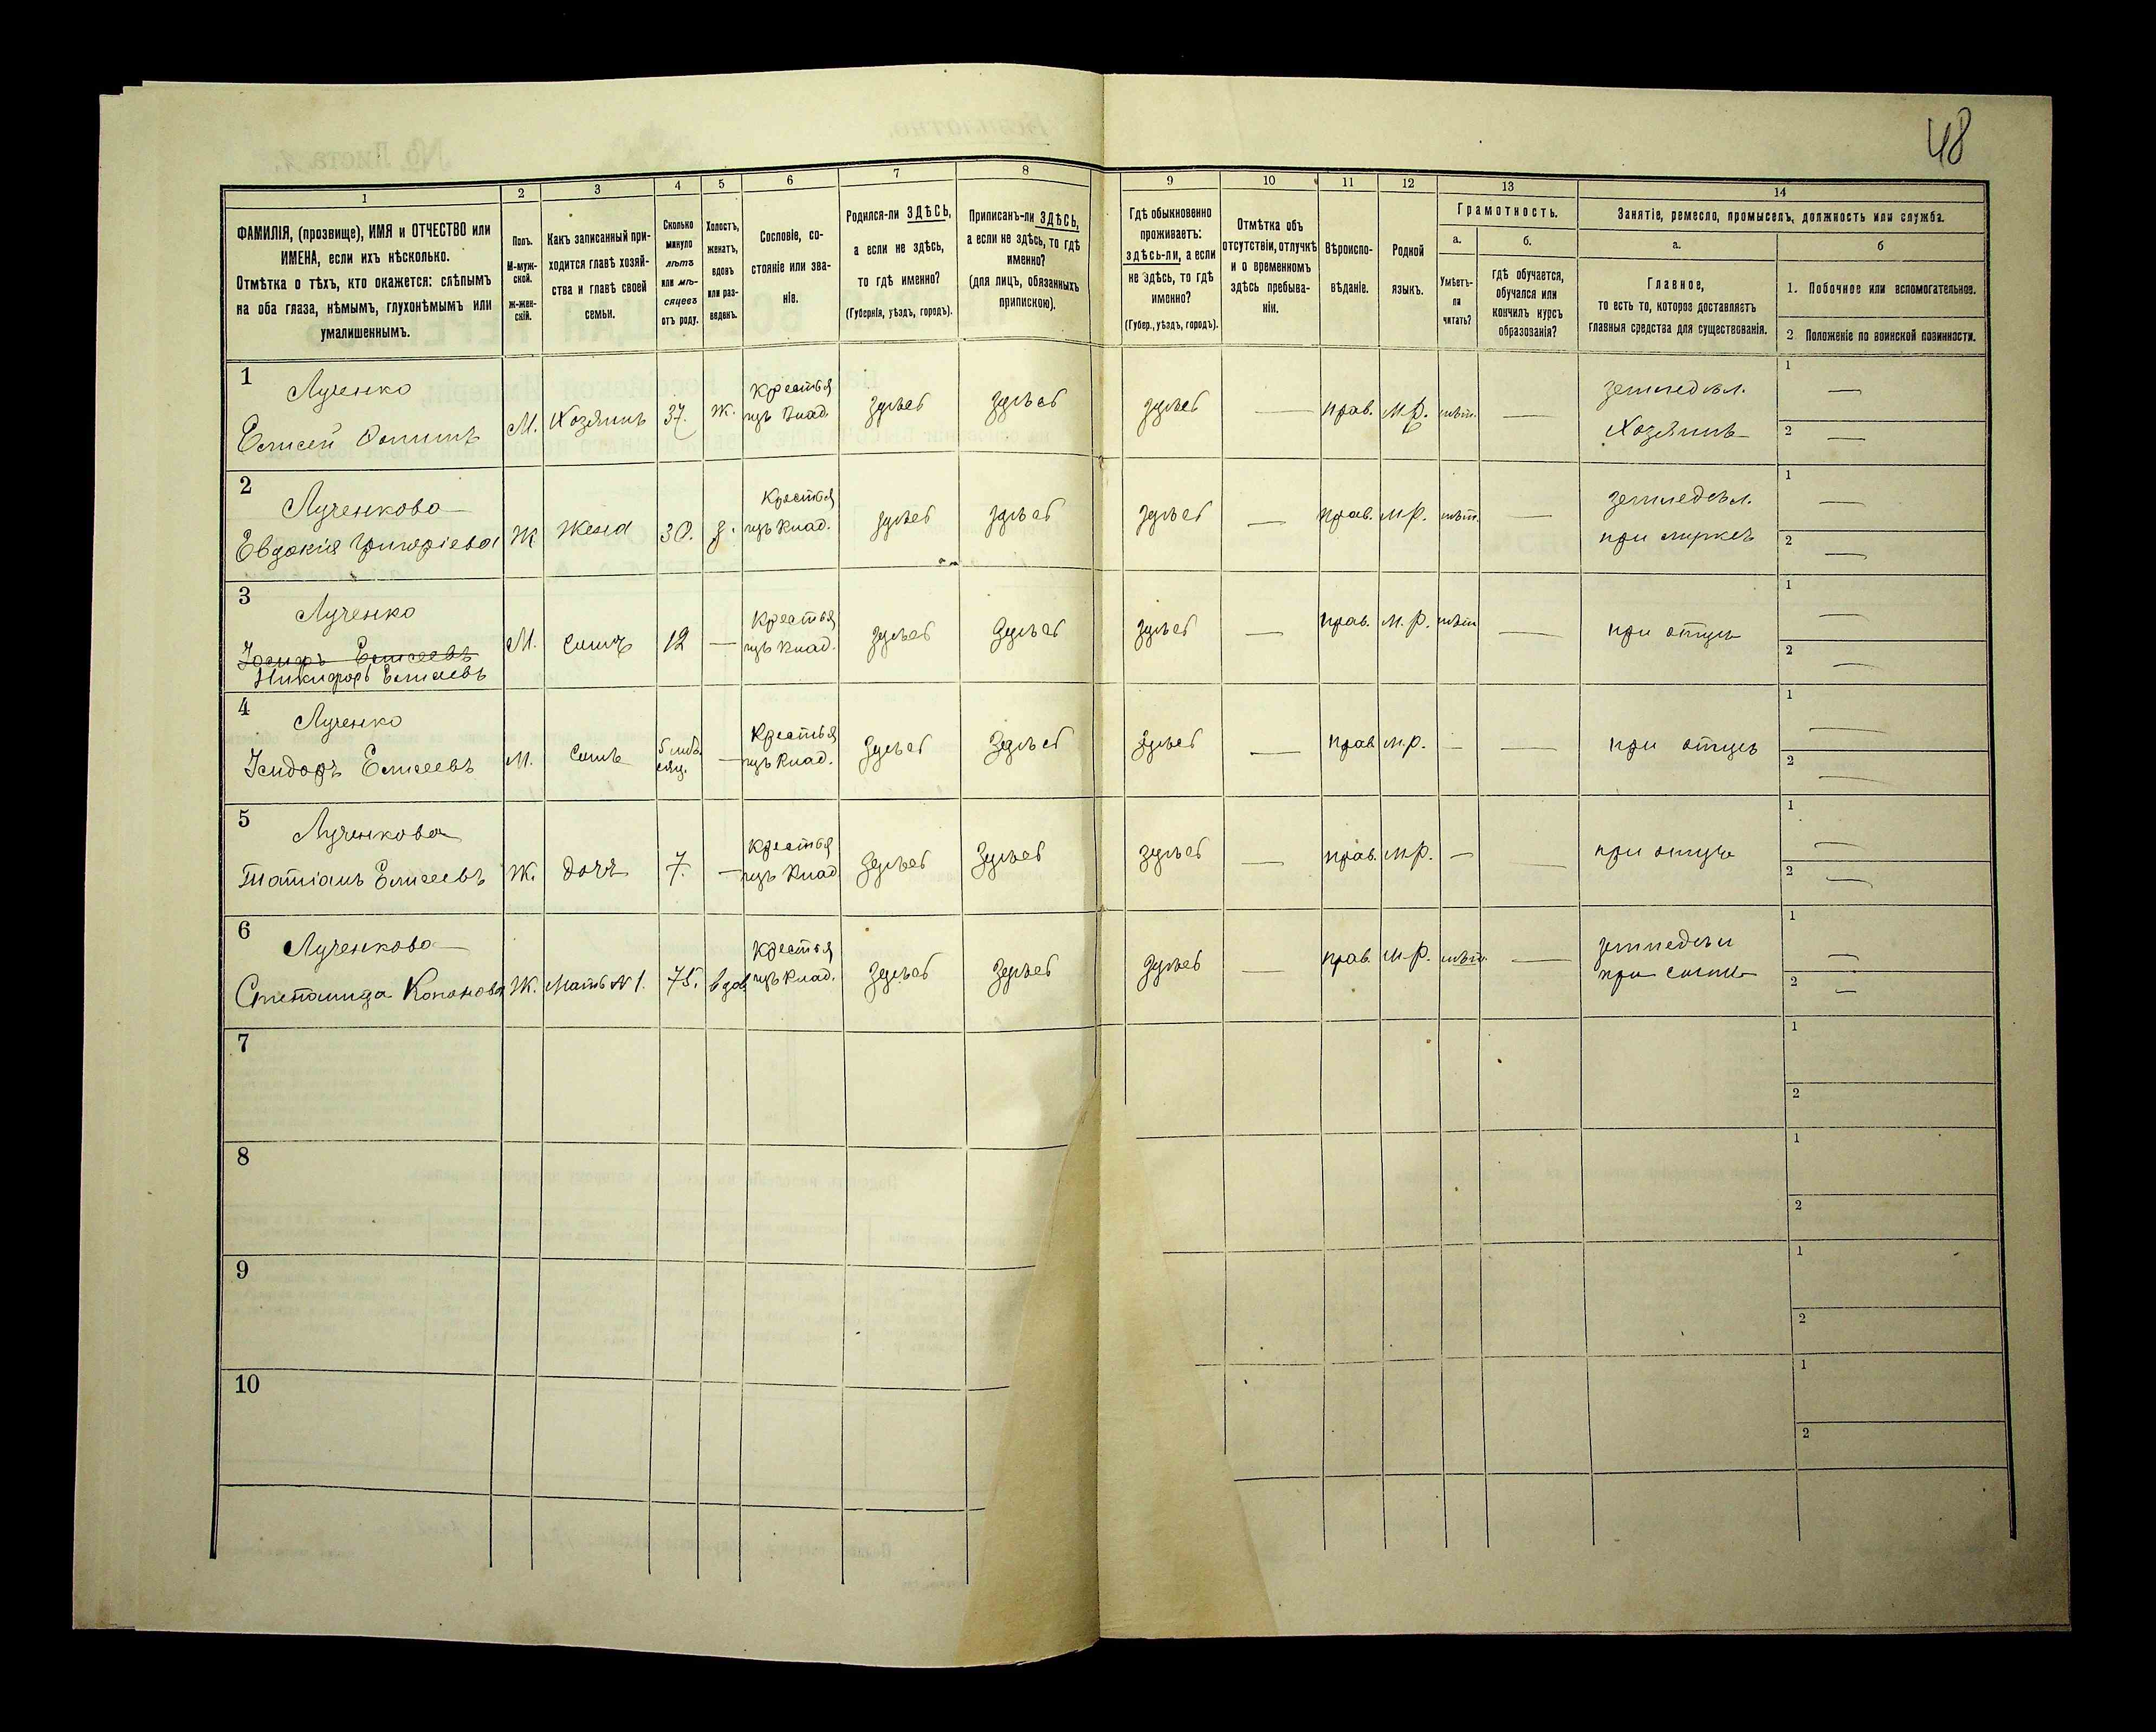 48
1 2 3 4 5 6 7 8 9 10 11 12 13 14
ФАМИЛІЯ, (прозвище), ИМЯ и ОТЧЕСТВО или
ИМЕНА, если ихъ нѣсколько.
Отмѣтка о тѣхъ, кто окажется: слѣпымъ
на оба глаза, нѣмымъ, глухонѣмымъ или
умалишеннымъ.
Полъ.
М-муж-
ской.
ж-жен-
скій.
Какъ записанный при-
ходится главѣ хозяй-
ства и главѣ своей
семьи.
Сколько
минуло
лѣтъ
или мѣ-
сяцевъ
отъ роду.
Холостъ,
женатъ,
вдовъ
или раз-
веденъ.
Сословіе, со-
стояніе или зва-
ніе.
Родился-ли ЗДѢСЬ,
а если не здѣсь,
то гдѣ именно?
(Губернія, уѣздъ, городъ).
Приписанъ-ли ЗДѢСЬ,
а если не здѣсь, то гдѣ
именно?
(для лицъ, обязанныхъ
припискою).
Гдѣ обыкновенно
проживаетъ:
здѣсь-ли, а если
не здѣсь, то гдѣ
именно?
(Губер., уѣздъ, городъ).
Отмѣтка объ
отсутствіи, отлучкѣ
и о временномъ
здѣсь пребыва-
ніи.
Вѣроиспо-
вѣданіе.
Родной
языкъ.
Грамотность.
а.
Умѣетъ-
ли
читать?
б.
гдѣ обучается,
обучался или
кончилъ курсъ
образованія?
Занятіе, ремесло, промыселъ, должность или служба.
а.
Главное,
то есть то, которое доставляетъ
главныя средства для существованія.
б
1. Побочное или вспомогательное.
2 Положеніе по воинской повинности.
1
Лученко
Елисей Фоминъ
М. Хозяинъ 37. ж.
Крестья
изъ влад.
здѣсь здѣсь здѣсь — прав. м.р. нѣт. —
земледѣл.
Хозяинъ
1 —
2 —
2
Лученкова
Евдокія Григоріева
Ж Жена 30. з.
Крестья
изъ влад.
здѣсь здѣсь здѣсь — прав. м.р. нѣт. —
земледѣл.
при мужѣ
1 —
2 —
3
Лученко
Никифоръ Елисеевъ
М. Сынъ 12 —
Крестья
изъ влад.
здѣсь здѣсь здѣсь — прав. м.р. нѣт —
при отцѣ
1 —
2 —
4
Лученко
Исидоръ Елисеевъ
М. Сынъ
5 мѣ
сяц.
—
Крестья
изъ влад.
здѣсь здѣсь здѣсь — прав м.р. — —
при отцѣ
1 —
2 —
5
Лученкова
Татіана Елисеевъ
Ж. дочь 7. —
Крестья
изъ влад
здѣсь здѣсь здѣсь — прав. м.р. — —
при отцѣ
1 —
2 —
6
Лученкова
Степанида Кононова
Ж. Мать №1. 75. вдов.
Крестья
изъ влад.
здѣсь здѣсь здѣсь — прав. м.р. нѣт. —
земледѣл
при сынѣ
1 —
2 —
7
1
2
8
1
2
9
1
2
10
1
2